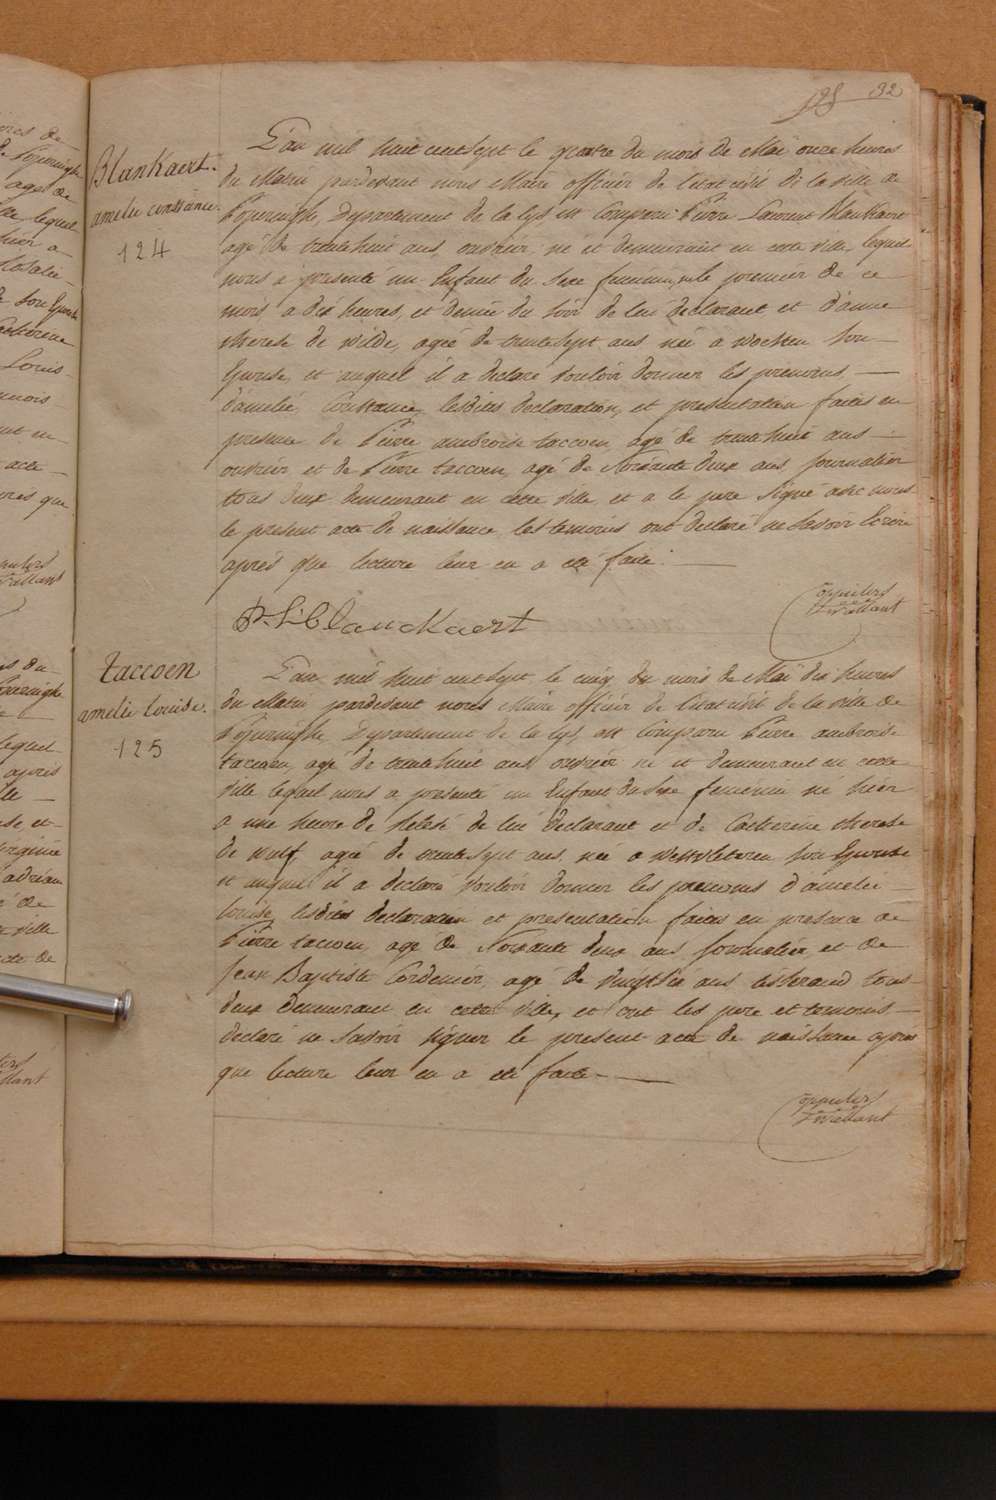 128 32
Blankaert.
amelie constance
124
L'an mil huit cent Sept le quatre du mois de Maï onze heures
du Matin pardevant nous Maire officier de l'etat civil de la ville de
Poperinghe, Departement de la Lys, est Comparu Pierre Laurent Blankaert
agé de trentehuit ans, ouvrier, né et demeurant en cette ville, lequel
nous a presenté un Enfant du Sexe feminin, né le premier de ce
mois a dix heures, et demie du soir de lui declarant et d'anne
therese de wilde, ageé de trentesept ans née a wocten Son
Epouse, et auquel il a declaré vouloir donner les prenoms, —
d'amelie, Constance, lesdites declaration, et presentation faites en
presence de Pierre ambroise taccoen, agé de trentehuit ans —
ouvrier et de Pierre taccoen, agé de Soixante deux ans Journalier
tous deux demeurant en cette ville, et a le pere Signé avec nous
le present acte de naissance, les temoins ont declaré ne Savoir Ecrire
après que lecture leur en a eté faite. —
P. L. Blanckaert
taccoen
amelie louise.
125
L'an mil huit cent Sept, le cinq du mois de Maï dix heures
du Matin pardevant nous Maire officier de l'etat civil de la ville de
Poperinghe, Departement de la Lys, est Comparu Pierre ambroise
taccoen, agé de trentehuit ans ouvrier né et demeurant en cette
ville lequel nous a presenté un Enfant du Sexe feminin né hier
a une heure de de lui declarant et de Catherine therese
de wulf, ageé de trente Sept ans, née a westvleteren Son Epouse
et auquel il a declaré vouloir donner les prenoms d'amelie
louise, lesdites declaration et presentation faites en presence de
Pierre taccoen, agé de Soixante deux ans Journalier, et de
Jean Baptiste Cordenier, agé de vingtsix ans tisserand tous
deux demeurant en cette ville, et ont les pere et temoins —
declaré ne Savoir signer le present acte de naissance apres
que lecture leur en a eté faite. —